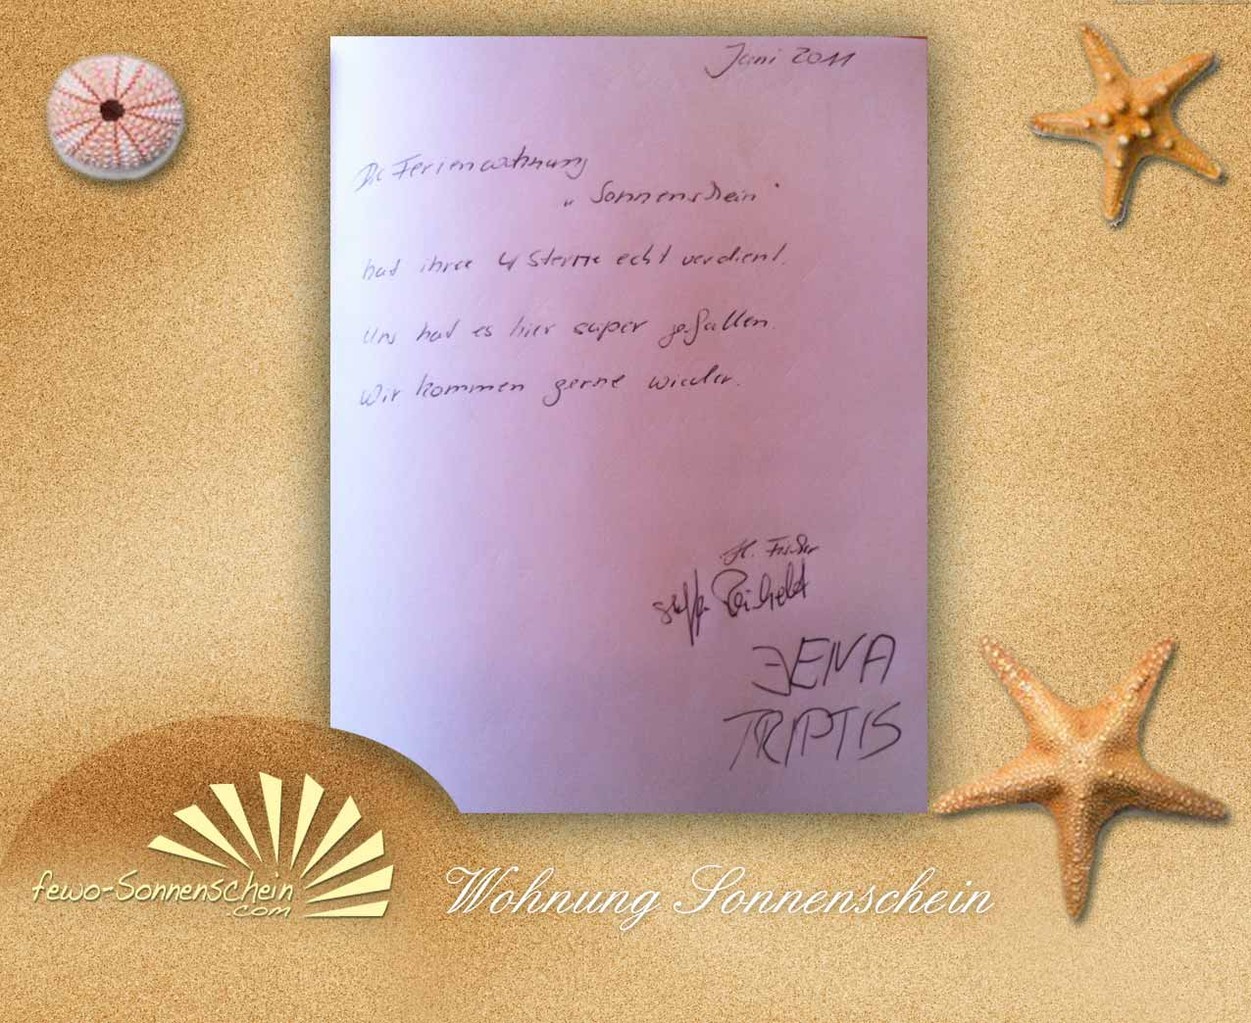 Juni 2011
Die Ferienwohnung
„Sonnenschein“
hat ihre 4 Sterne echt verdient.
Uns hat es hier super gefallen.
Wir kommen gerne wieder.
H. Fischer
Reichelt
JENA
TRIPTIS
fewo-Sonnenschein
.com
Wohnung Sonnenschein